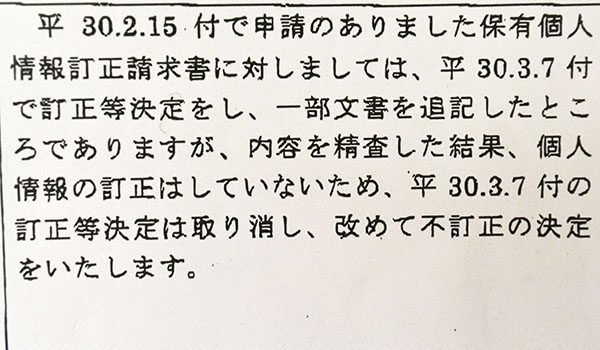 平 30.2.15 付で申請のありました保有個人
情報訂正請求書に対しましては、平 30.3.7 付
で訂正等決定をし、一部文書を追記したとこ
ろでありますが、内容を精査した結果、個人
情報の訂正はしていないため、平 30.3.7 付の
訂正等決定は取り消し、改めて不訂正の決定
をいたします。